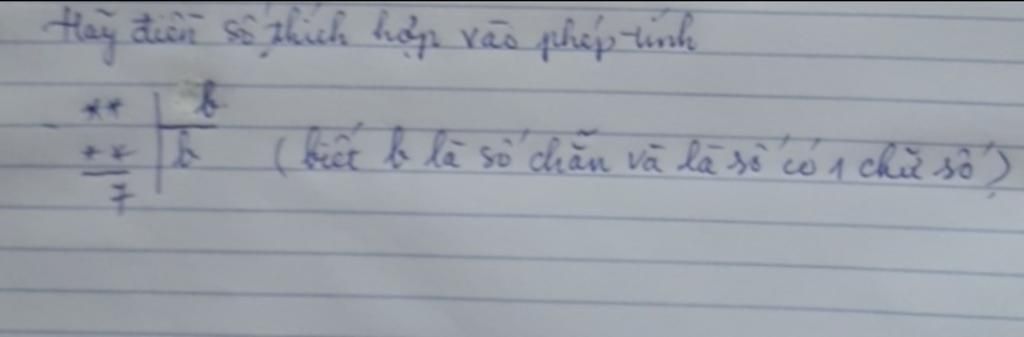 Hãy điền số thích hợp vào phép tính
** | b
- ** | b (biết b là số chẵn và là số có 1 chữ số)
7